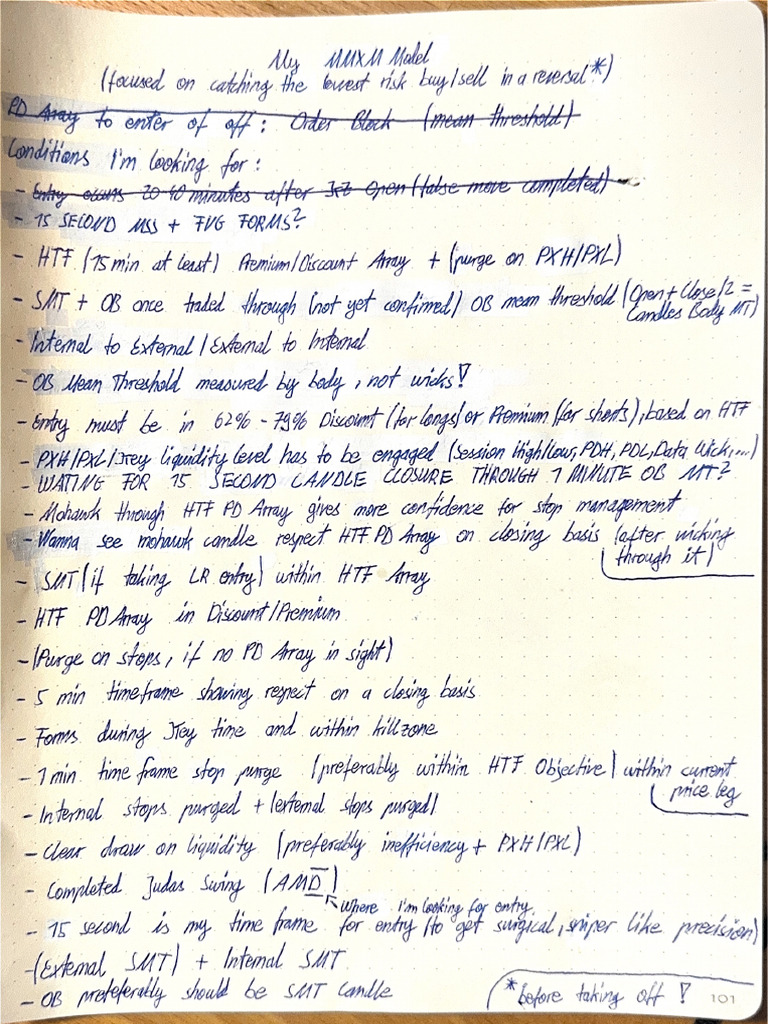 My MMXM Model
(focused on catching the lowest risk buy/sell in a reversal*)
PD Array to enter of off : Order Block (mean threshold)
Conditions I'm looking for :
- Entry occurs 20-40 minutes after Open (false move completed)
- 15 SECOND MSS + FVG FORMS?
- HTF (15min at least) Premium/Discount Array + (purge on PXH/PXL)
- SMT + OB once traded through (not yet confirmed) OB mean threshold (Open + Close/2 =
Candles Body MT)
- Internal to External / External to Internal
- OB Mean Threshold measured by body, not wicks!
- Entry must be in 62% - 79% Discount (for longs) or Premium (for shorts), based on HTF
- PXH/PXL/Key liquidity level has to be engaged (Session High/Low, PDH, PDL, Data Wick,...)
- WATING FOR 15 SECOND CANDLE CLOSURE THROUGH 1 MINUTE OB MT?
- Mohawk through HTF PD Array gives more confidence for stop management
- Wanna see mohawk candle respect HTF PD Array on closing basis (after wicking
through it)
- SMT (if taking LR entry) within HTF Array
- HTF PD Array in Discount/Premium
- (Purge on stops, if no PD Array in sight)
- 5 min timeframe showing respect on a closing basis
- Forms during Key time and within killzone
- 1 min time frame stop purge (preferably within HTF Objective) within current
price leg
- Internal stops purged + (external stops purged)
- Clear draw on liquidity (preferably inefficiency + PXH/PXL)
- Completed Judas Swing (AMD)
where I'm looking for entry
- 15 second is my time frame for entry (to get surgical, sniper like precision)
- (External SMT) + Internal SMT
- OB preteferably should be SMT candle
*before taking off !
101